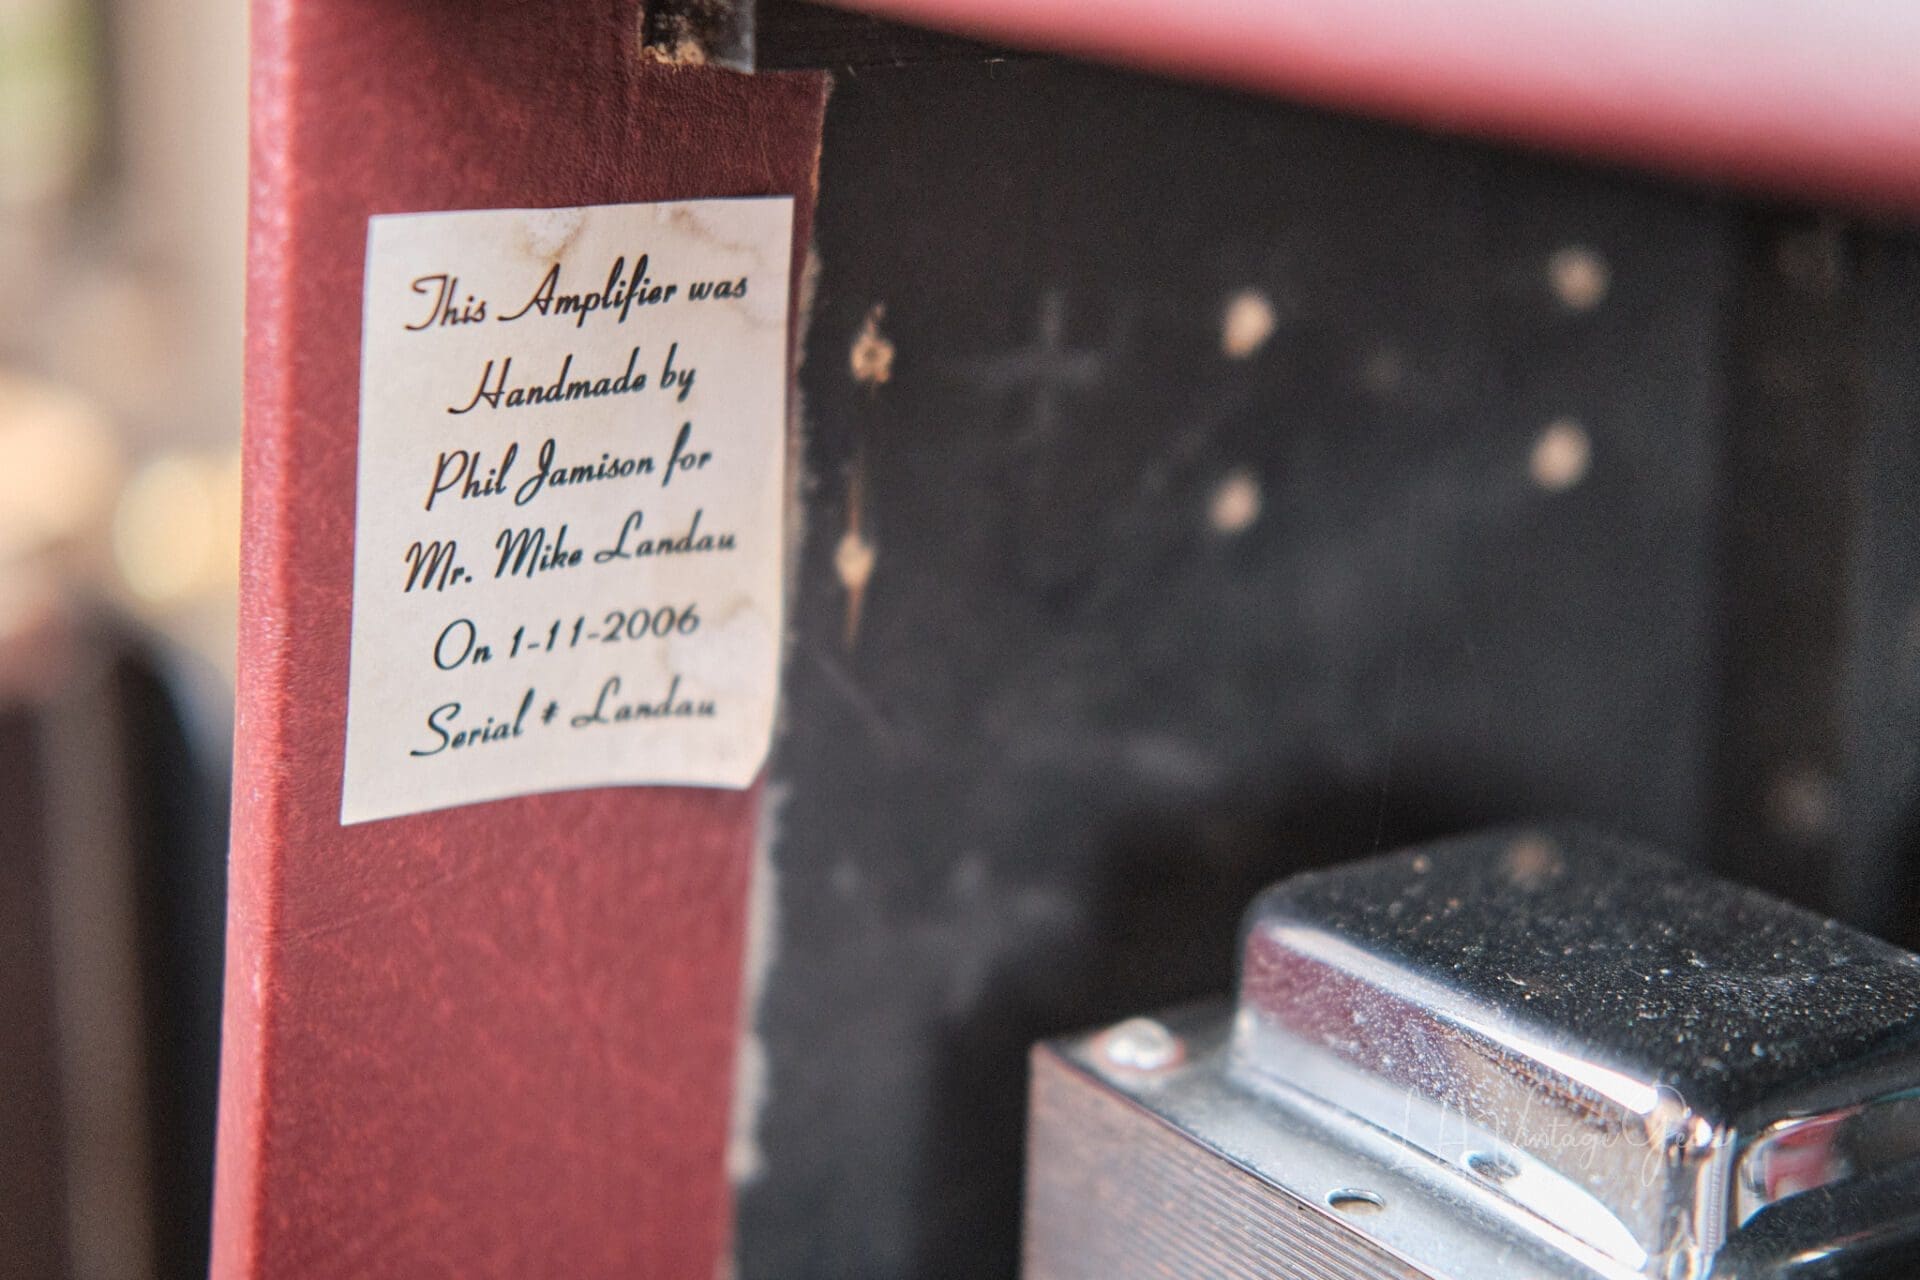 This Amplifier was
Handmade by
Phil Jamison for
Mr. Mike Landau
On 1-11-2006
Serial # Landau
LA Vintage Gear